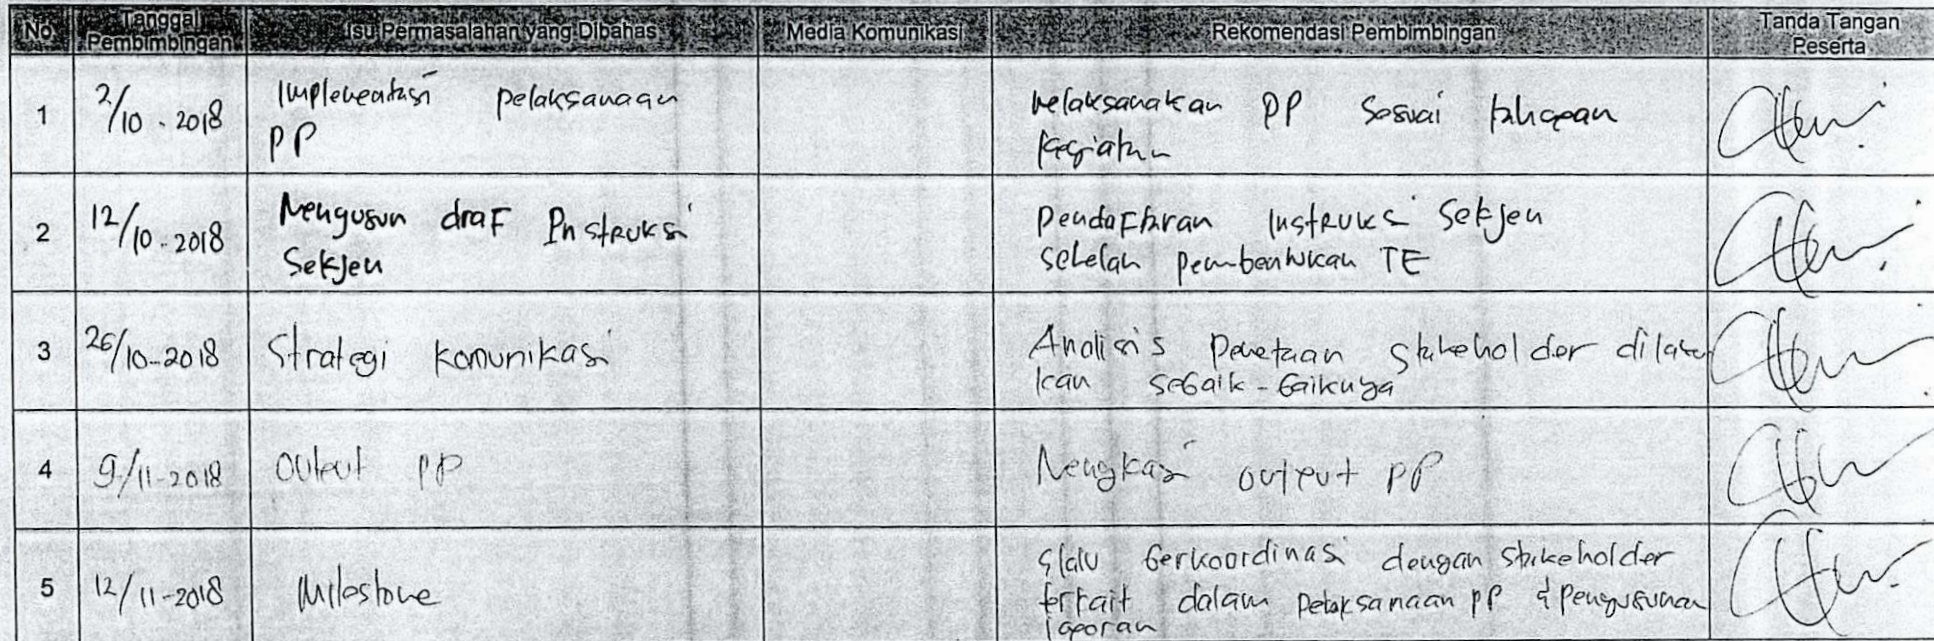 No Tanggal Pembimbingan Isu Permasalahan yang Dibahas Media Komunikasi Rekomendasi Pembimbingan Tanda Tangan Peserta
1 2/10 - 2018 Implementasi pelaksanaan melaksanakan PP sesuai tahapan
PP kegiatan
2 12/10 - 2018 Menyusun draf Instruksi Pendaftaran Instruksi Sekjen
Sekjen setelah pembentukan TE
3 26/10-2018 Strategi komunikasi Analisis pemetaan stakeholder dilaku
kan sebaik-baiknya
4 9/11-2018 Output PP Mengkaji output PP
5 12/11-2018 Milestone slalu berkoordinasi dengan stakeholder
terkait dalam pelaksanaan PP & penyusunan
laporan